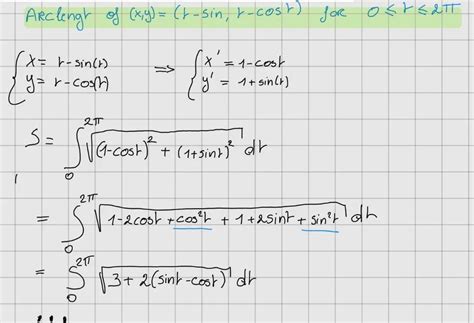 Arclenght of (x,y) = (t-sin, t-cost) for 0 ≤ t ≤ 2π
{ x = t-sin(t) ⟹ { x' = 1-cost
{ y = t-cos(t) { y' = 1+sin(t)
S = ∫₀^2π √((1-cost)² + (1+sint)²) dt
= ∫₀^2π √(1-2cost+cos²t + 1+2sint+sin²t) dt
= ∫₀^2π √(3+2(sint-cost)) dt